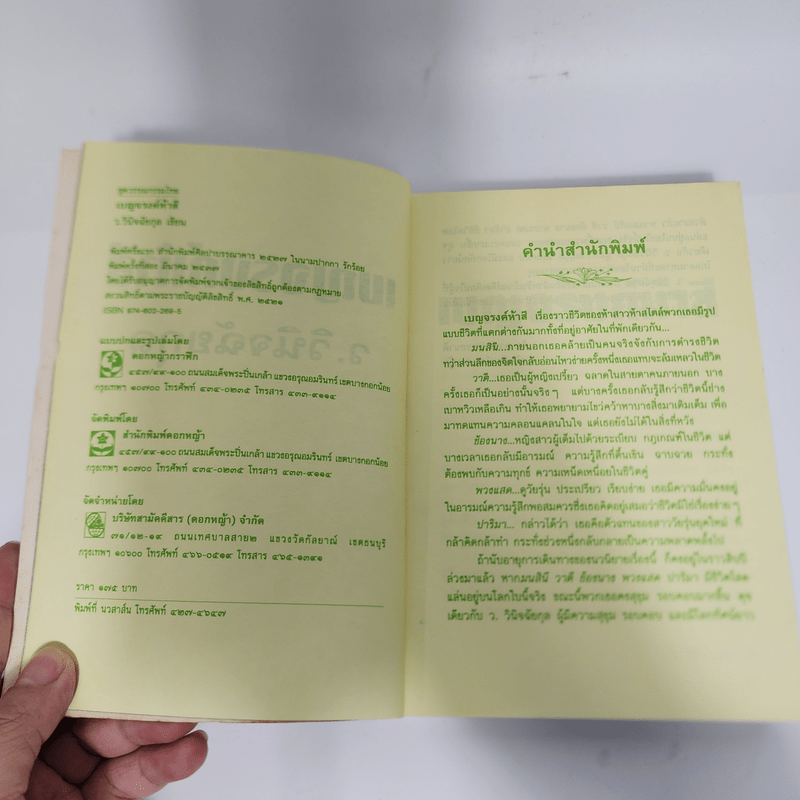 ชุดวรรณกรรมไทย
เบญจรงค์ห้าสี
ว.วินิจฉัยกุล เขียน
พิมพ์ครั้งแรก สำนักพิมพ์ศิลปาบรรณาคาร ๒๕๒๗ ในนามปากกา รักร้อย
พิมพ์ครั้งที่สอง มีนาคม ๒๕๓๗
โดยได้รับอนุญาตการจัดพิมพ์จากเจ้าของลิขสิทธิ์ถูกต้องตามกฎหมาย
สงวนลิขสิทธิ์ตามพระราชบัญญัติลิขสิทธิ์ พ.ศ. ๒๕๒๑
ISBN 974-602-269-5
แบบปกและรูปเล่มโดย
ดอกหญ้ากราฟิก
๔๕๗/๔๔-๑๐๐ ถนนสมเด็จพระปิ่นเกล้า แขวงอรุณอมรินทร์ เขตบางกอกน้อย
กรุงเทพฯ ๑๐๗๐๐ โทรศัพท์ ๔๓๔-๐๒๓๕ โทรสาร ๔๓๓-๙๑๑๔
จัดพิมพ์โดย
สำนักพิมพ์ดอกหญ้า
๔๕๗/๔๔-๑๐๐ ถนนสมเด็จพระปิ่นเกล้า แขวงอรุณอมรินทร์ เขตบางกอกน้อย
กรุงเทพฯ ๑๐๗๐๐ โทรศัพท์ ๔๓๔-๐๒๓๕ โทรสาร ๔๓๓-๙๑๑๔
จัดจำหน่ายโดย
บริษัทสามัคคีสาร (ดอกหญ้า) จำกัด
๗๑/๑๒-๑๙ ถนนเทศบาลสาย๒ แขวงวัดกัลยาณ์ เขตธนบุรี
กรุงเทพฯ ๑๐๖๐๐ โทรศัพท์ ๔๖๖-๐๕๑๙ โทรสาร ๔๖๕-๑๓๙๑
ราคา ๑๗๕ บาท
พิมพ์ที่ นวสาส์น โทรศัพท์ ๔๒๗-๔๖๔๗
คำนำสำนักพิมพ์
เบญจรงค์ห้าสี เรื่องราวชีวิตของห้าสาวห้าสไตล์พวกเธอมีรูป
แบบชีวิตที่แตกต่างกันมากทั้งที่อยู่อาศัยในที่พักเดียวกัน...
มนสินี...ภายนอกเธอคล้ายเป็นคนจริงจังกับการดำรงชีวิต
ทว่าส่วนลึกของจิตใจกลับอ่อนไหวง่ายครั้งหนึ่งเธอแทบจะล้มเหลวในชีวิต
วาตี...เธอเป็นผู้หญิงเปรี้ยว ฉลาดในสายตาคนภายนอก บาง
ครั้งเธอก็เป็นอย่างนั้นจริงๆ แต่บางครั้งเธอกลับรู้สึกว่าชีวิตนี้ช่าง
เบาหวิวเหลือเกิน ทำให้เธอพยายามไขว่คว้าหาบางสิ่งมาเติมเต็ม เพื่อ
มาทดแทนความคลอนแคลนในใจ แต่เธอยังไม่ได้ในสิ่งที่หวัง
ช้องนาง...หญิงสาวผู้เต็มไปด้วยระเบียบ กฎเกณฑ์ในชีวิต แต่
บางเวลาเธอกลับมีอารมณ์ ความรู้สึกที่ตื่นเต้น ฉาบฉวย กระทั่ง
ต้องพบกับความทุกข์ ความเหน็ดเหนื่อยในชีวิตคู่
พวงแสด...ดูวัยรุ่น ประเปรียว เรียบง่าย เธอมีความมั่นคงอยู่
ในอารมณ์ความรู้สึกพอสมควรซึ่งเธอคิดอยู่เสมอว่าชีวิตมิใช่เรื่องง่ายๆ
ปาริมา... กล่าวได้ว่า เธอคือตัวแทนของสาววัยรุ่นยุคใหม่ ที่
กล้าคิดกล้าทำ กระทั่งช่วงหนึ่งกลับกลายเป็นความพลาดพลั้งไป
ถ้านับอายุการเดินทางของนวนิยายเรื่องนี้ ก็คงอยู่ในราวสิบปี
ล่วงมาแล้ว หากมนสินี วาตี ช้องนาง พวงแสด ปาริมา มีชีวิตโลด
แล่นอยู่บนโลกใบนี้จริง ขณะนี้พวกเธอคงสุขุม รอบคอบมากขึ้น ดุจ
เดียวกับ ว. วินิจฉัยกุล ผู้มีความสุขุม รอบคอบ และมีโลกทัศน์ยาว